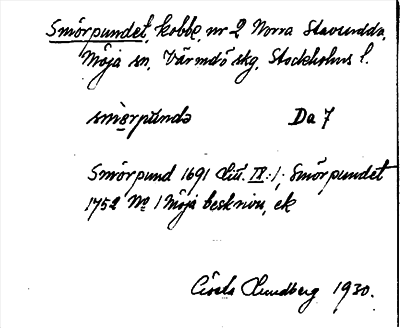 Smörpundet, kobbe, nr 2 Norra Stavsudda,
Möja sn, Värmdö skg, Stockholms l.
smörpundə Da 7
Smörpund 1691 Litt. IX:1; Smörpundet
1752 No 1 Möja beskrivn, ek
Gösta Lundberg 1930.